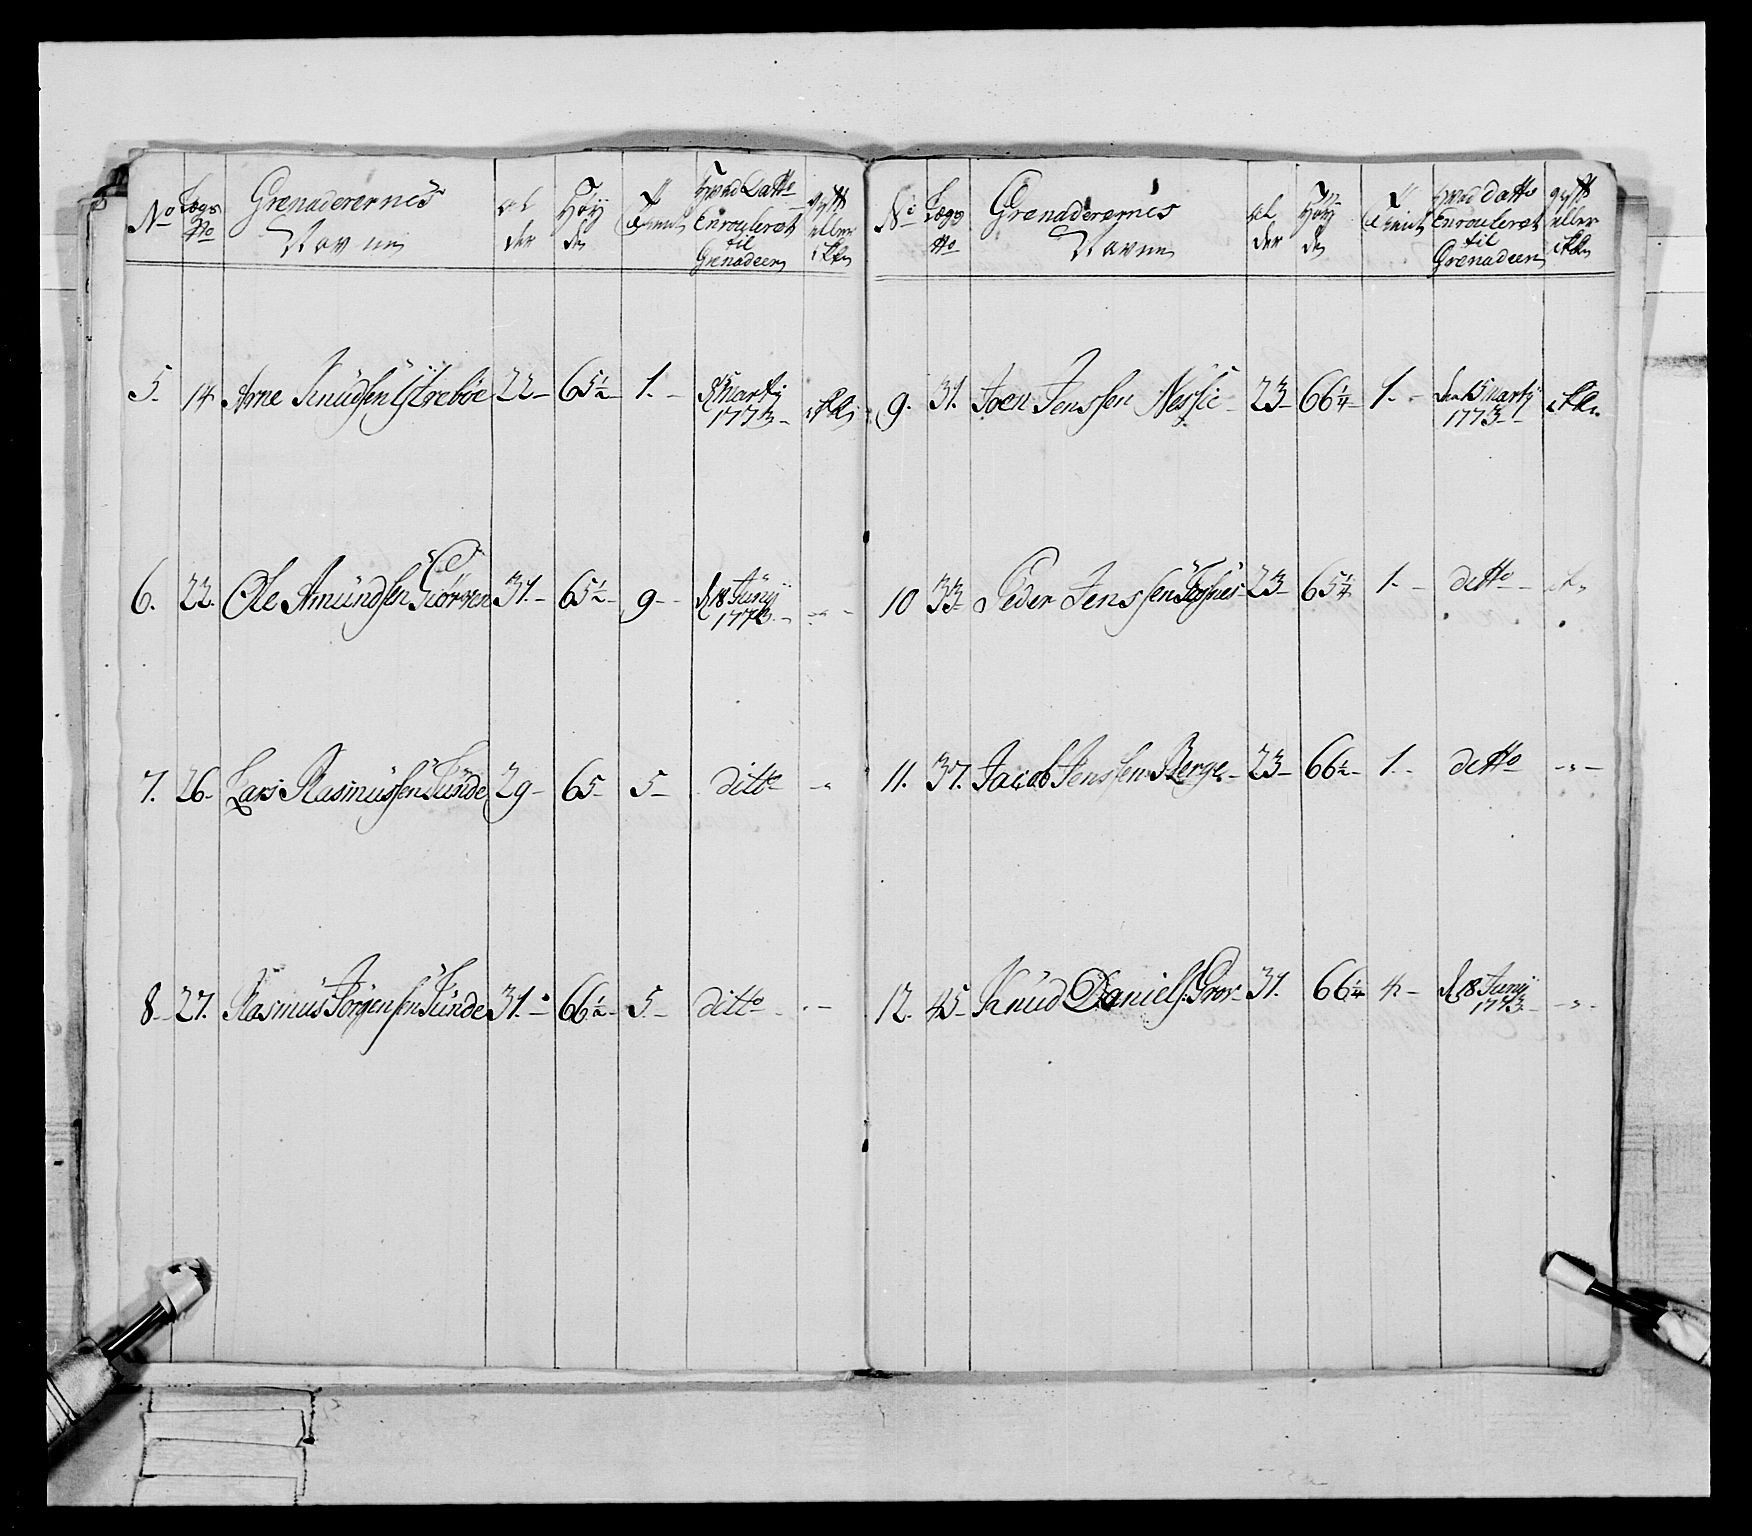 No Lægs No Grenaderernes Navne Al der Høy den Tienst Hvad Datto Enrouleret til Grenadeer gyft eller ikke
5. 14 Arne Knüdsen Ystrebøe 22 65½ 1. d 15 Martij 1773 ikke
6. 22. Ole Amündsen 31. 65½ 9 d 18 Junij 1772 "
7. 26 Lars Rasmüssen Tünde 29 65 5 ditto "
8 27. Rasmus Jörgensen Tünde 31. 66½ 5 ditto
No Lægs No Grenaderernes Navne Al der Høy den Tienst Hvad datto Enrouleret til Grenadeer gyft eller ikke
9. 31. Joen Jenssen Nessie 23 66¼ 1. den 15 Martij 1773 ikke
10 33 Peder Jenssen 23 65¼ 1 ditto
11. 37. Jacob Jenssen Berge 23 66½ 1. ditto "
12. 45 Knüd Daniels: Gror 31. 66¼ 4 d 18 Junij 1773 "